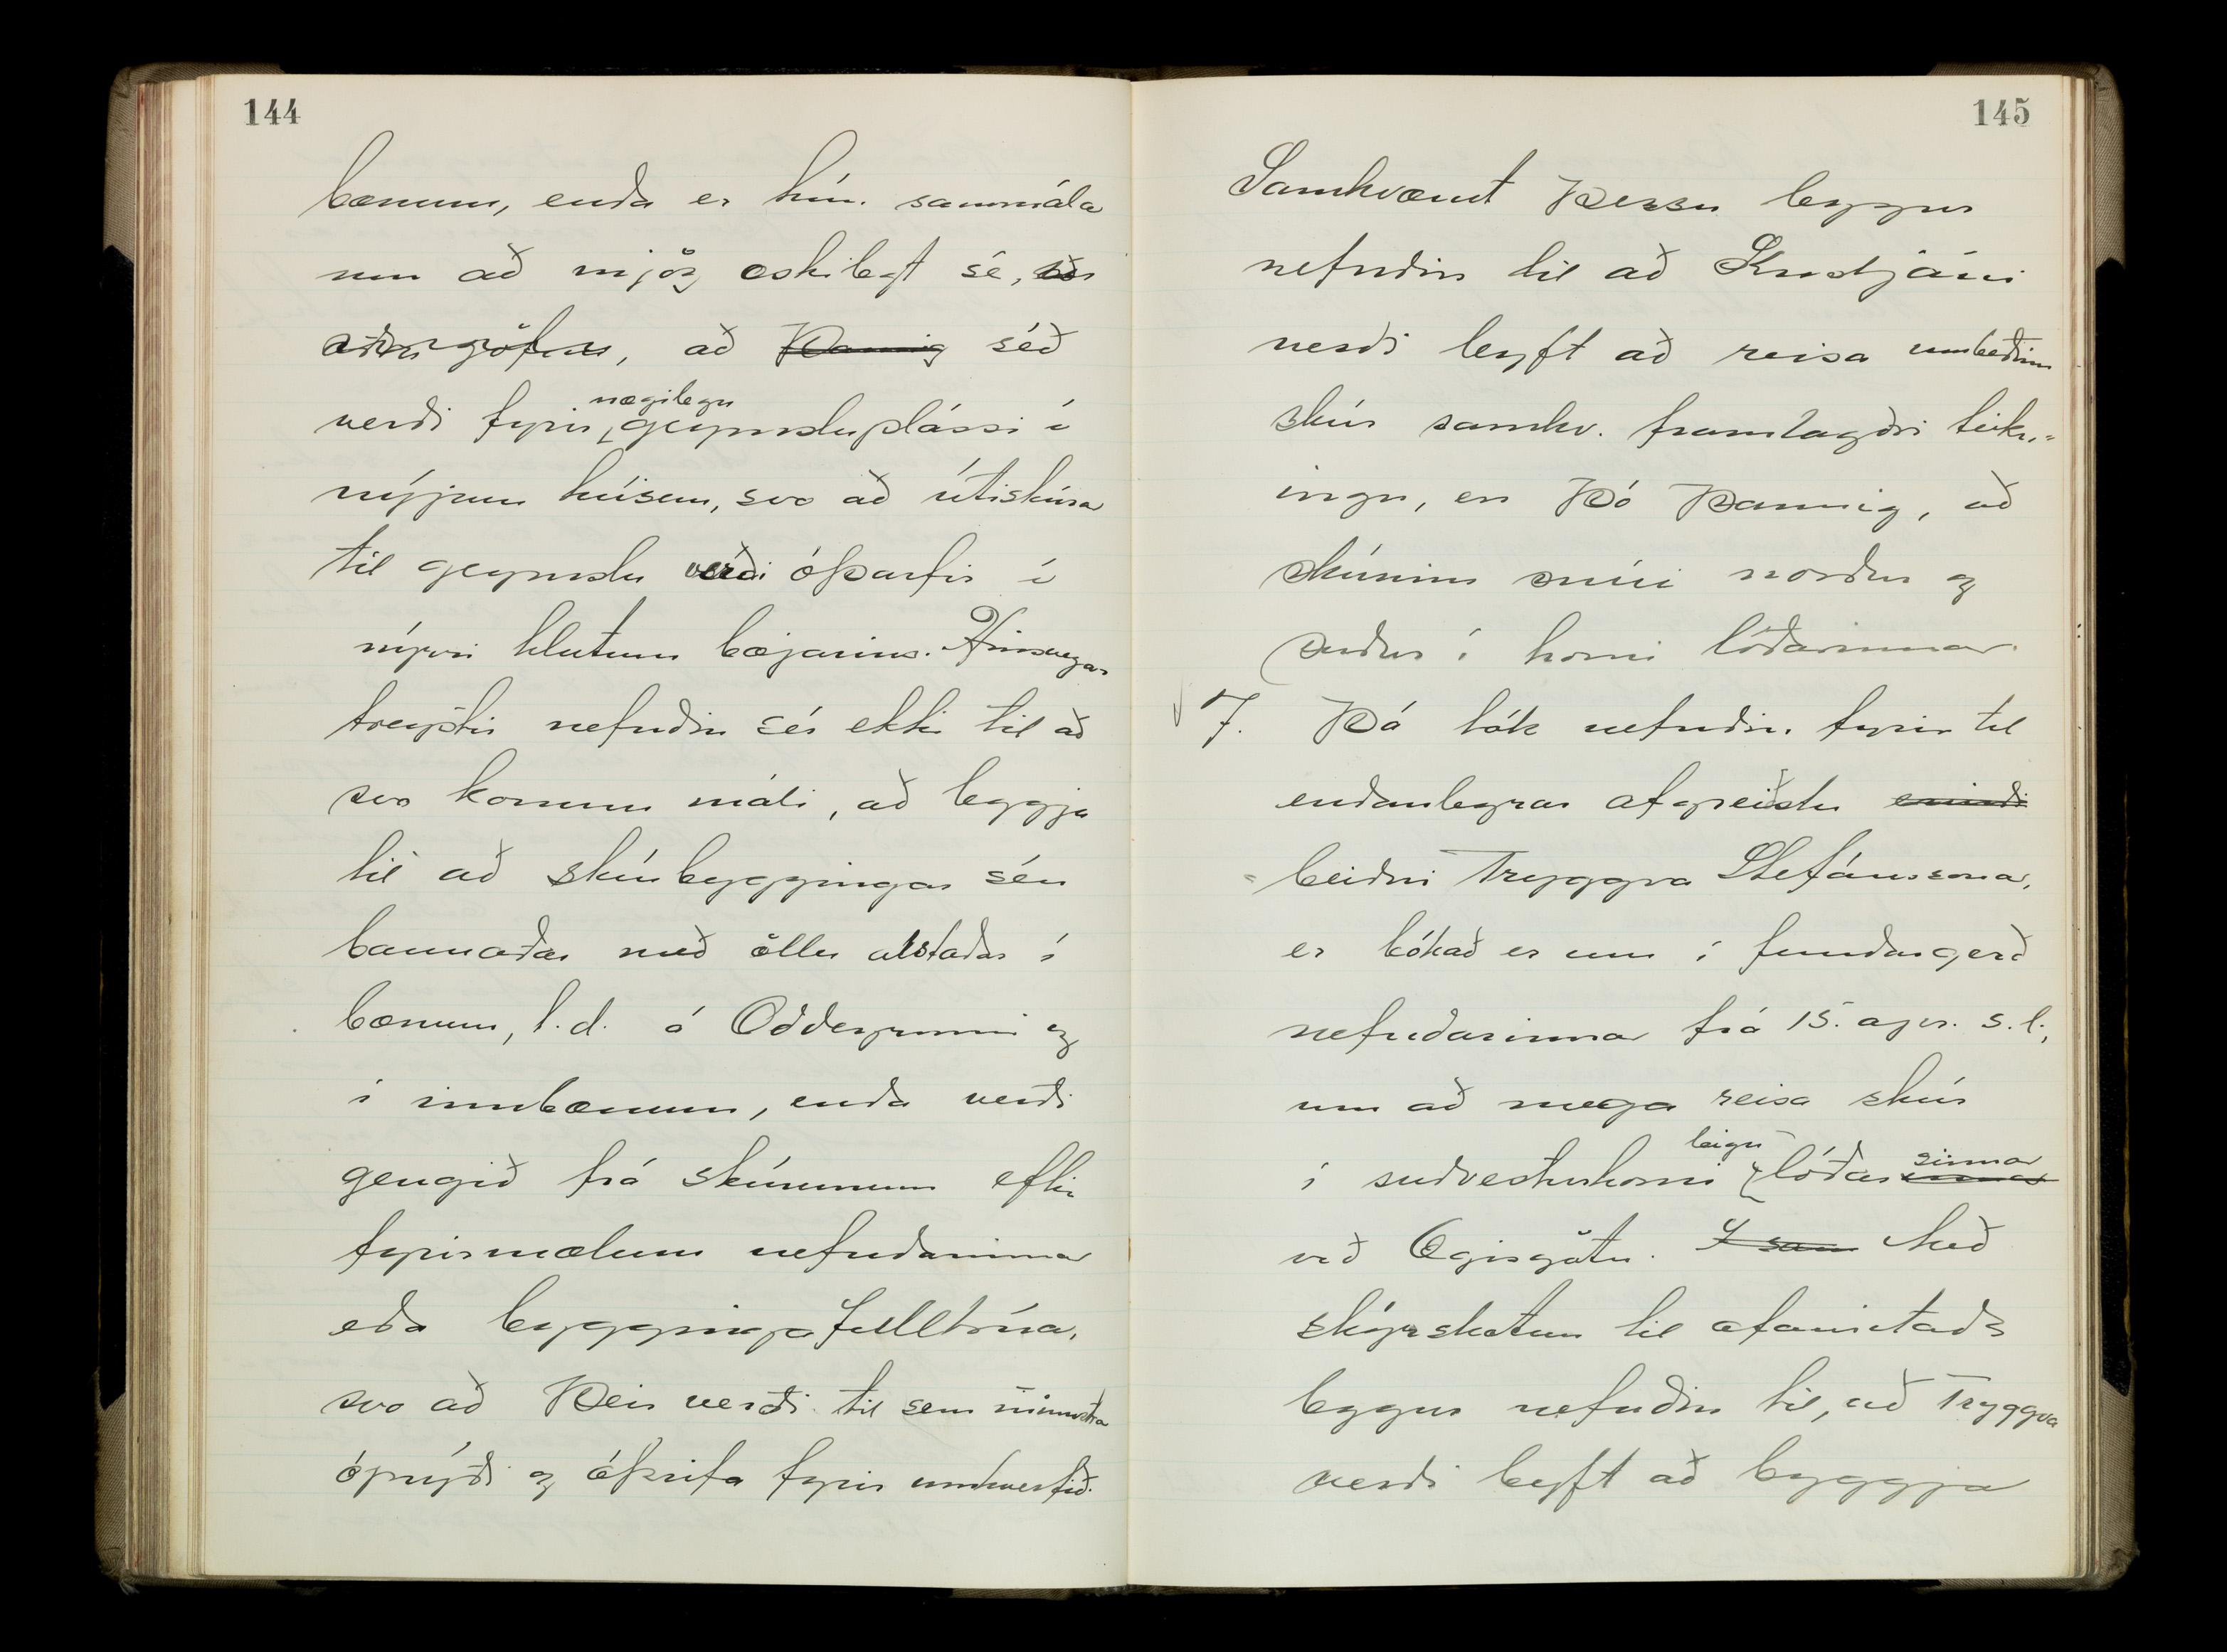 144
bænum, enda er hún sammála
um að mjög æskilegt sé,
að þannig séð
nægilegu
verði fyrir geymsluplássi í
nýjum húsum, svo að útiskúra
til geymslu verði óþarfir í
nýrri hlutum bæjarins. Hinsvegar
treystir nefndin sér ekki til að
svo komnu máli, að leggja
til að skúrbyggingar séu
bannaðar með öllu alstaðar í
bænum, t.d. á Oddeyrinni og
í innbænum, enda verði
gengið frá skúrunum eftir
fyrirmælum nefndarinnar
eða byggingafulltrúa,
svo að þeir verði til sem minnstra
óprýði og óþrifa fyrir umhverfið.
145
Samkvæmt þessu leggur
nefndin til að Kristjáni
verði leyft að reisa umbeðinn
skúr samkv. framlagðri teikn-
ingu, en þó þannig, að
skúrinn snúi norður og
suður í horni lóðarinnar.
7. Þá tók nefndin fyrir til
endanlegrar afgreiðslu erindi
beiðni Tryggva Stefánssonar,
er bókað er um í fundargerð
nefndarinnar frá 15. apr. s.l.,
um að mega reisa skúr
leigu- sinnar
í suðvesturhorni lóðar innar
við Ægisgötu. I sam Með
skýrskotun til ofanritaðs
leggur nefndin til, að Tryggva
verði leyft að byggja